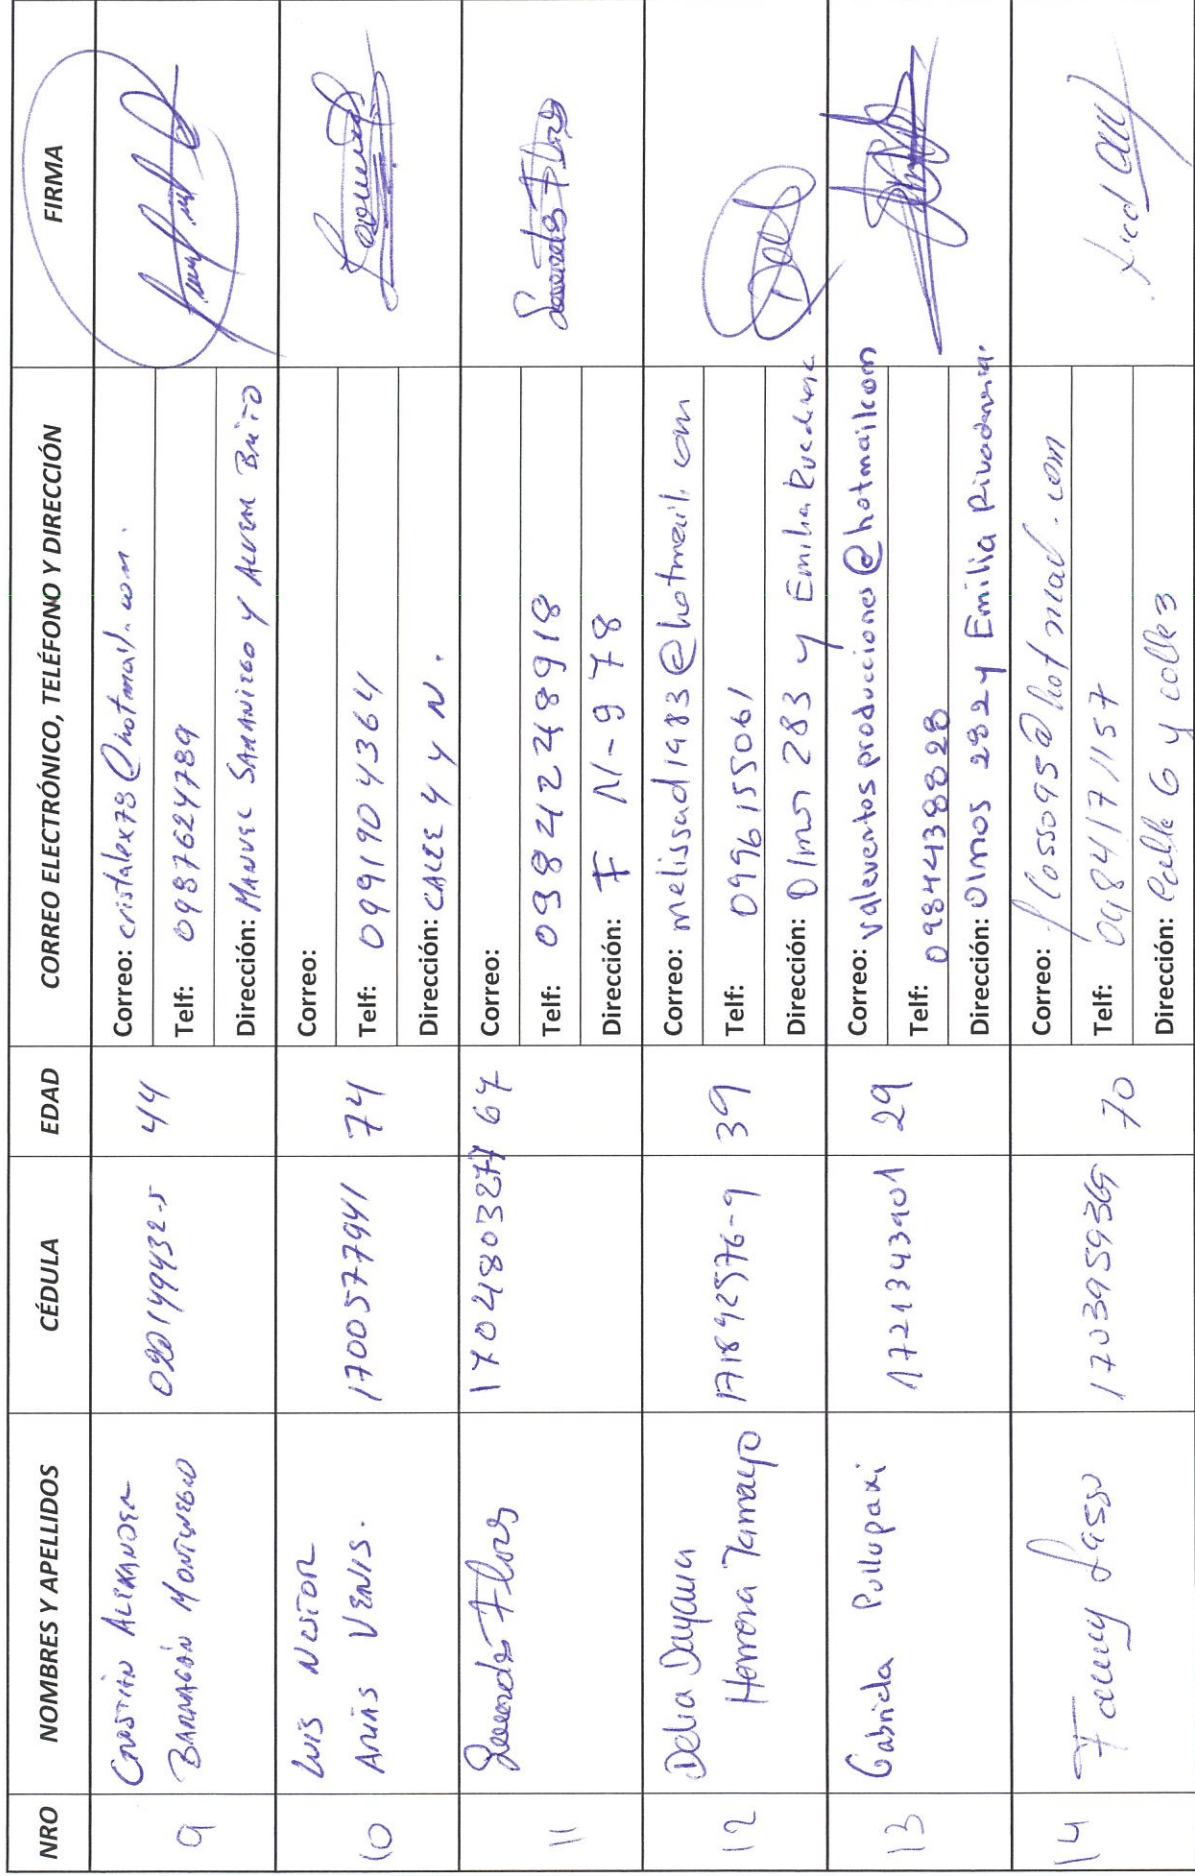 NRO NOMBRES Y APELLIDOS CÉDULA EDAD CORREO ELECTRÓNICO, TELÉFONO Y DIRECCIÓN FIRMA
9
CRISTIAN ALEXANDER
BARRAGÁN MONTENEGRO
020149432-5
44
Correo: cristalex78@hotmail.com.
Telf: 0987624789
Dirección: MANUEL SAMANIEGO Y ALVEAR BRITO
10
LUIS NESTOR
ARIAS VENIS.
1700577941
74
Correo:
Telf: 0991904364
Dirección: CALLE 4 Y N.
11
Flores
1704803277
67
Correo:
Telf: 09841248918
Dirección: F N-978
Flores
12
Delia Dayana
Herrera Tamayo
171892576-9
39
Correo: melissad1983@hotmail.com
Telf: 0996155061
Dirección: Olmos 283 y Emilia
13
Gabriela Pullupaxi
1721343901
29
Correo: valeventosproducciones@hotmailcom
Telf: 0984438828
Dirección: Olmos 282 y Emilia Rivadeneria.
14
Fanny Lasso
1703959369
70
Correo: flosso95@hotmail.com
Telf: 0984171157
Dirección: Calle G y calle 3